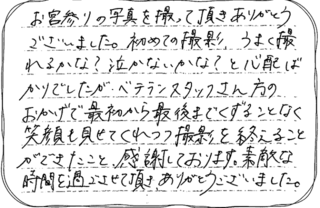 お宮参りの写真を撮って頂きありがとう
ございました。初めての撮影、うまく撮
れるかな？泣かないかな？と心配ば
かりでしたがベテランスタックさん方の
おかげで最初から最後までくずることなく
笑顔も見せてくれつつ撮影を終えること
ができたこと、感謝しております。素敵な
時間を過ごさせて頂きありがとうございました。